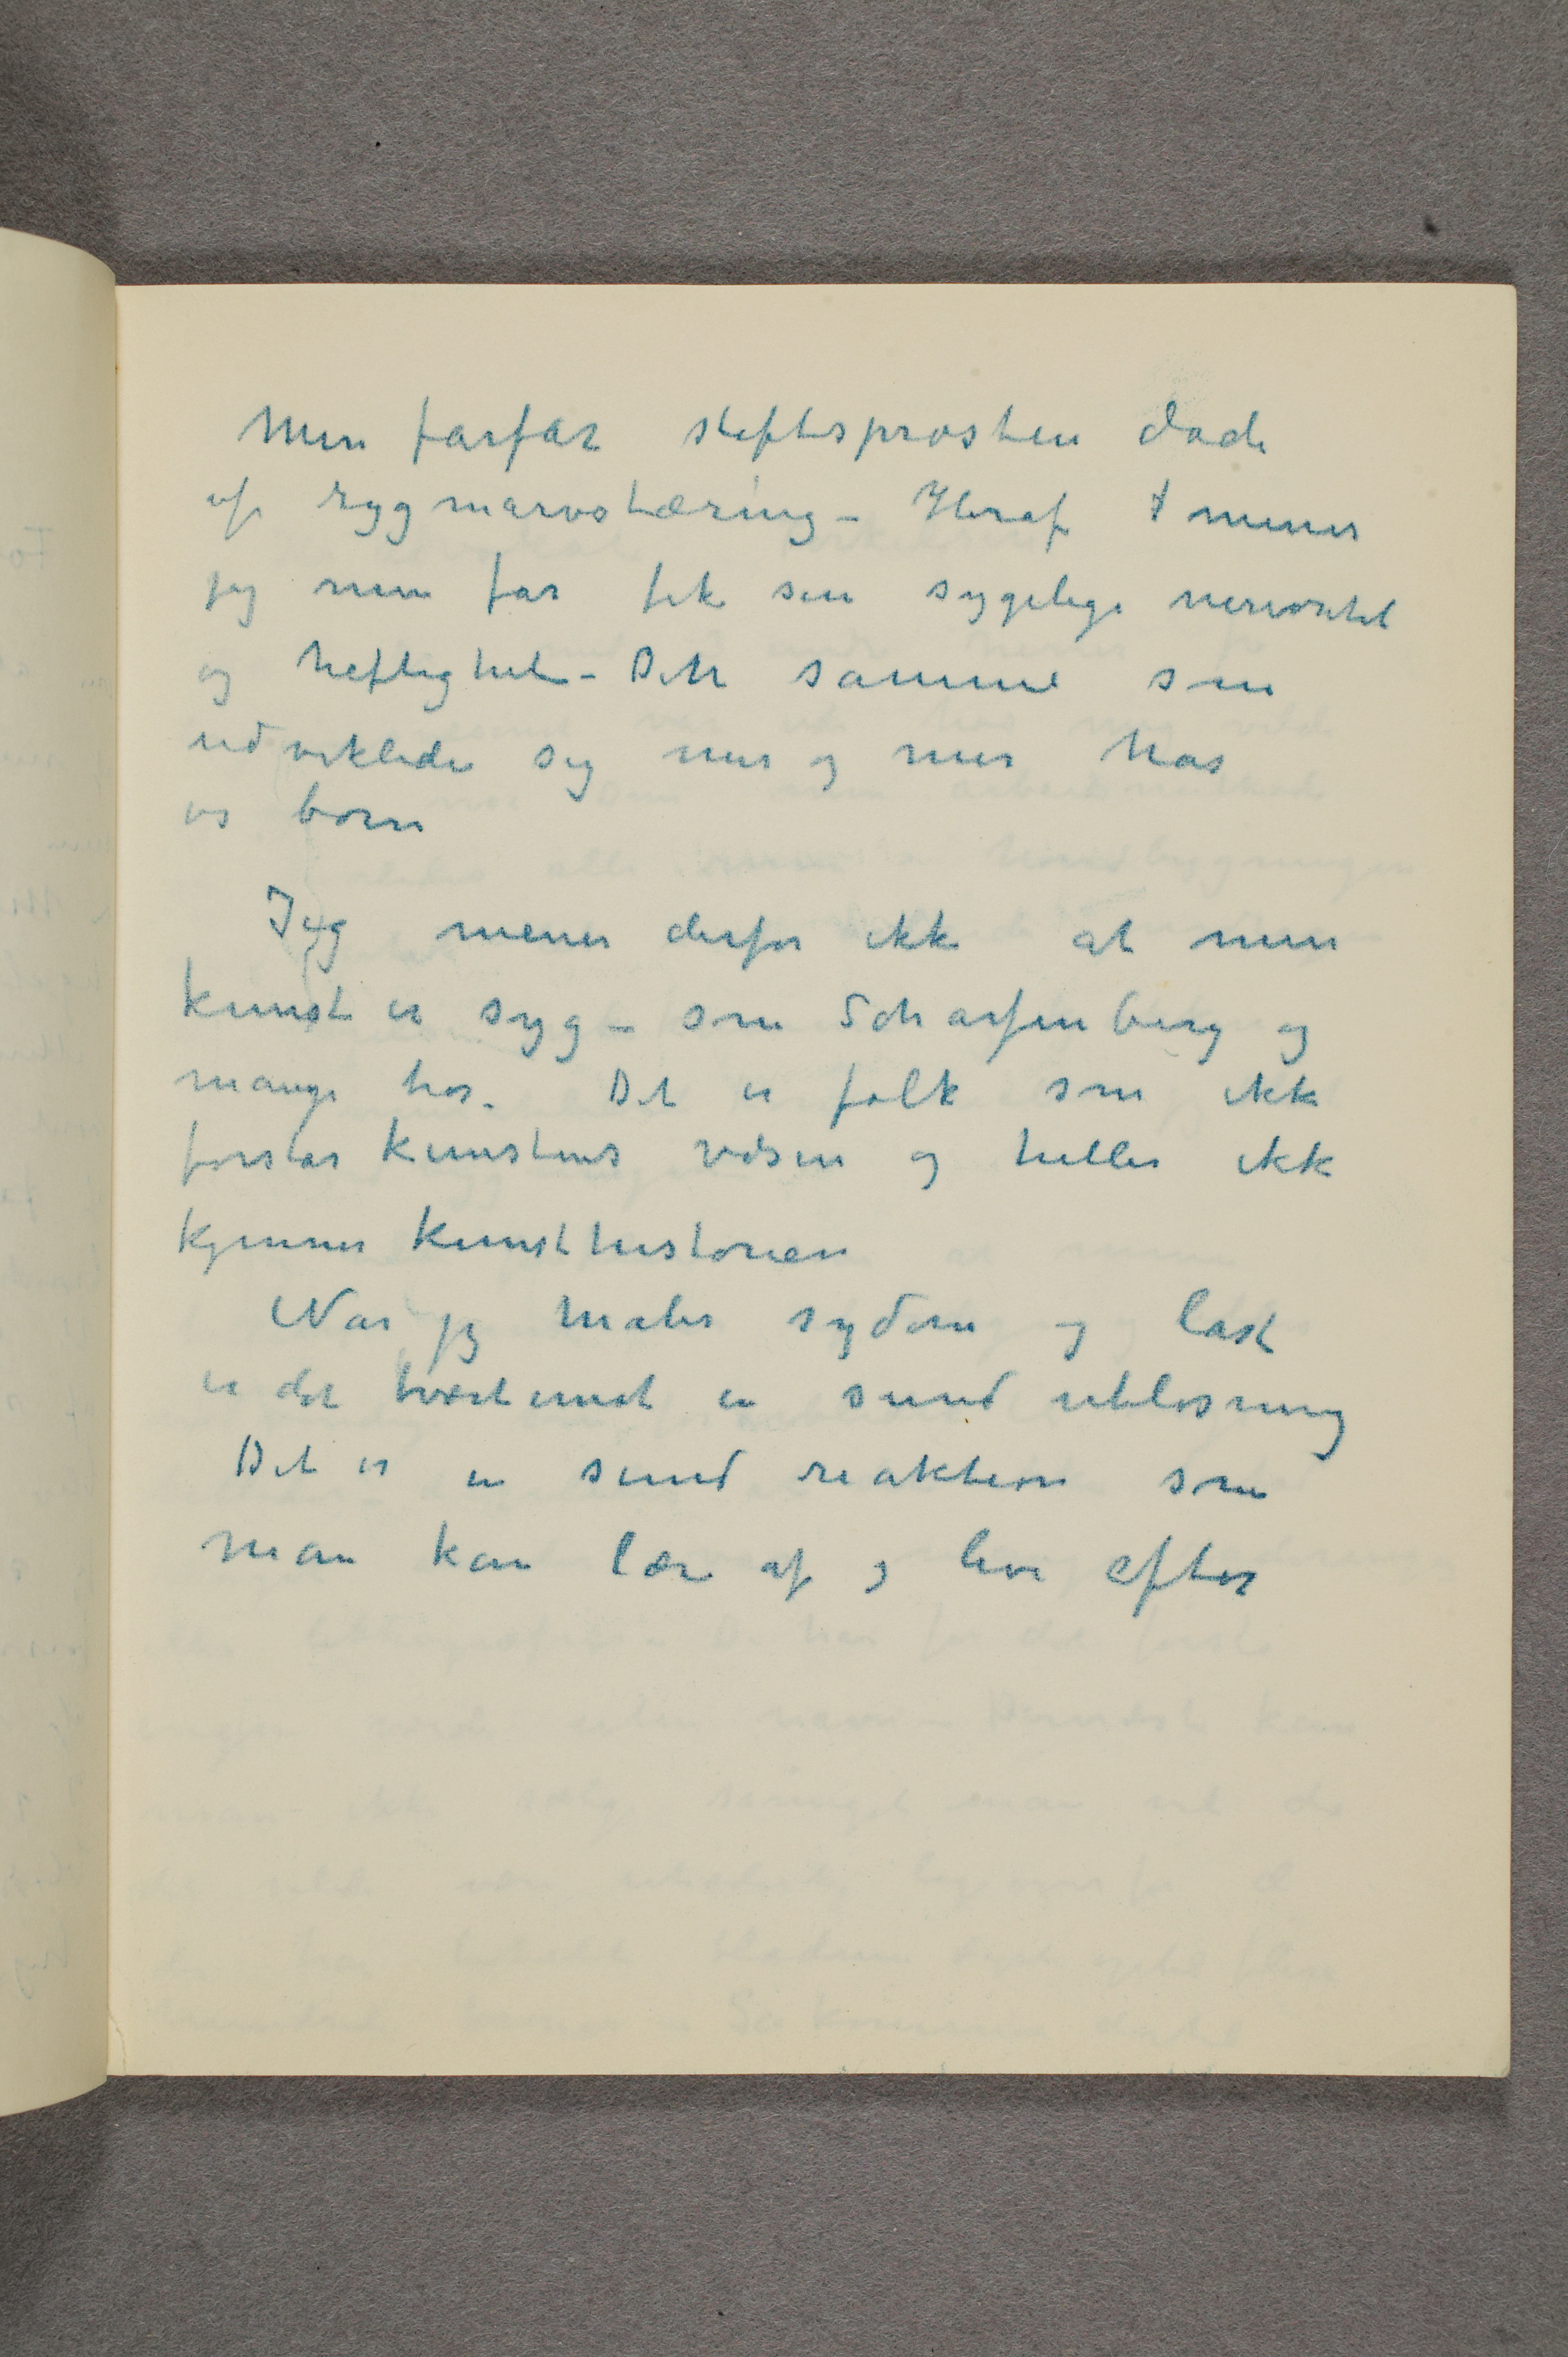 Min farfar stiftsprosten døde
af rygmarvstæring – Heraf mener
jeg min far fik sin sygelige nervøsitet
og heftighet – Dette samme som
udviklede sig mer og mer hos
os børn
Jeg mener derfor ikke at min
kunst er syg – som Scharfenberg og
mange tror. Det er folk som ikke
forstår kunstens væsen og heller ikke
kjenner kunsthistorien
Når jeg maler sydom og last
er det tværtimot en sund utløsning
Det er en sund reaktion som
man kan lære af og leve efter